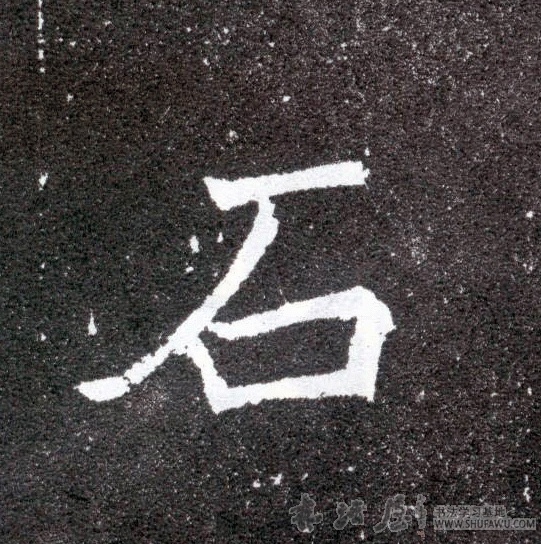 石
书法学习基地
WWW.SHUFAWU.COM